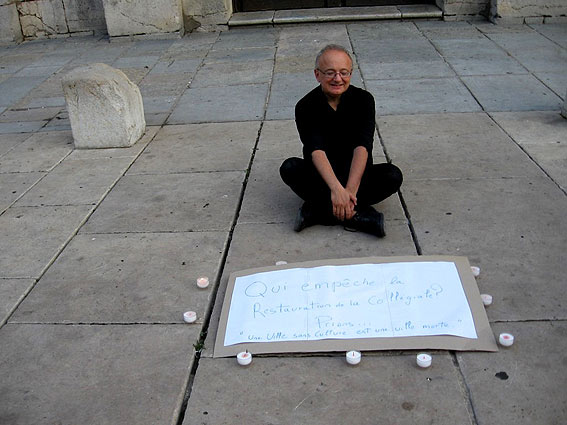 Qui empêche la
Restauration de la Collégiale?
Prions...
"Une ville sans culture est une ville morte"